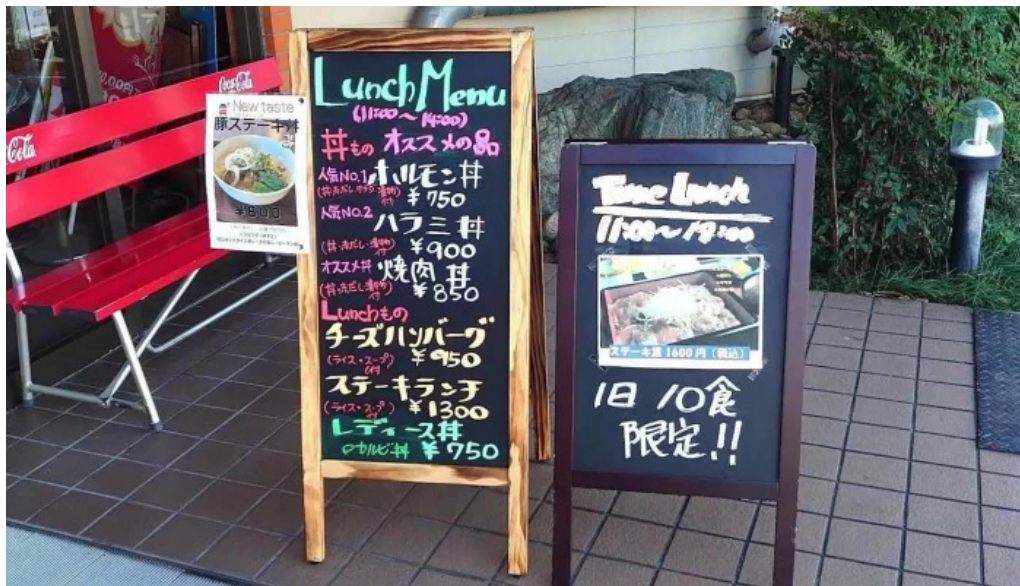 Coca-Cola
Cola
New taste
豚ステーキ丼
¥800
Lunch Menu
(11:00～14:00)
丼もの オススメの品
人気No.1 ホルモン丼
¥750
人気No.2 ハラミ丼
¥900
オススメ丼 焼肉丼
¥850
Lunchもの
チーズハンバーグ
(ライス・スープ付) ¥950
ステーキランチ
(ライス・スープ付) ¥1300
レディース丼
カルビ丼 ¥750
Time Lunch
ステーキ重 1600円（税込）
1日 10食
限定!!